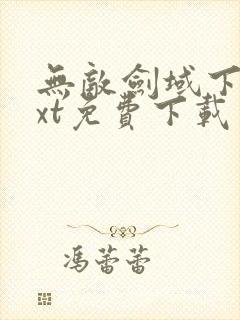 無敵劍域下
xt免費下載
馮蕾蕾